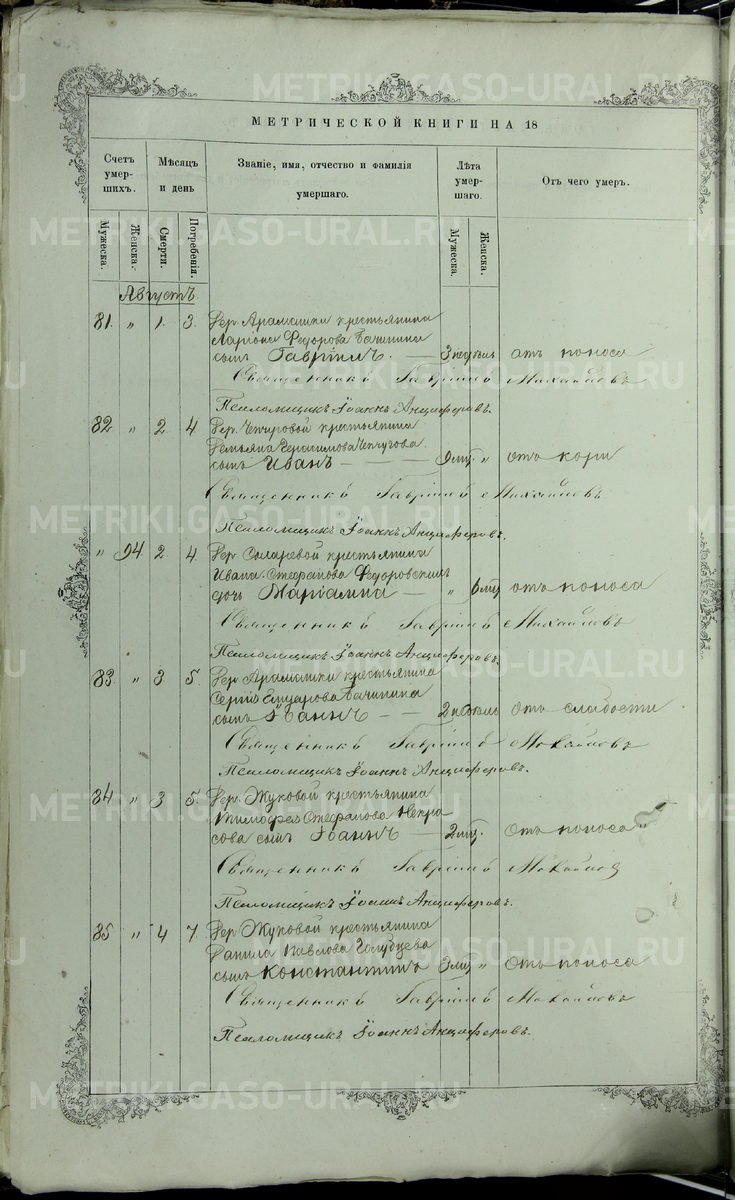 МЕТРИЧЕСКОЙ КНИГИ НА 18
Счетъ умер- шихъ.
Мѣсяцъ и день
Званіе, имя, отчество и фамилія умершаго.
Лѣта умер- шаго.
Отъ чего умеръ.
Мужеска. Женска. Смерти. Погребенія. Мужеска. Женска.
Августъ
81. " 1. 3. Дер. Арамашки крестьянина
Ларіона Федорова Бачинина
сынъ Гавріилъ. 3 недѣль отъ поноса
Священникъ Гавріилъ Михайловъ
Псаломщикъ Іоаннъ Анциферовъ.
82 " 2 4 Дер. крестьянина
Демьяна Герасимова Чепчугова
сынъ Иванъ 9 мц. " отъ кори
Священникъ Гавріилъ Михайловъ
Псаломщикъ Іоаннъ Анциферовъ.
" 94 2 4 Дер. крестьянина
Ивана Стефанова Федоровскихъ
дочь " 6 мц отъ поноса
Священникъ Гавріилъ Михайловъ
Псаломщикъ Іоаннъ Анциферовъ.
83. " 3 5. Дер. Арамашки крестьянина
Сергія Бачинина
сынъ Іоаннъ 2 недѣль отъ слабости
Священникъ Гавріилъ Михайловъ
Псаломщикъ Іоаннъ Анциферовъ.
84 " 3 5. Дер. Жуковой крестьянина
Тимофея Стефанова Некра
сова сынъ Іоаннъ 2 мц. отъ поноса
Священникъ Гавріилъ Михайлов
Псаломщикъ Іоаннъ Анциферовъ.
85 " 4 7. Дер. Жуковой крестьянина
Данила Павлова Голубцева
сынъ Константинъ 3 мц " отъ поноса
Священникъ Гавріилъ Михайловъ
Псаломщикъ Іоаннъ Анциферовъ.
METRIKI.GASO-URAL.RU